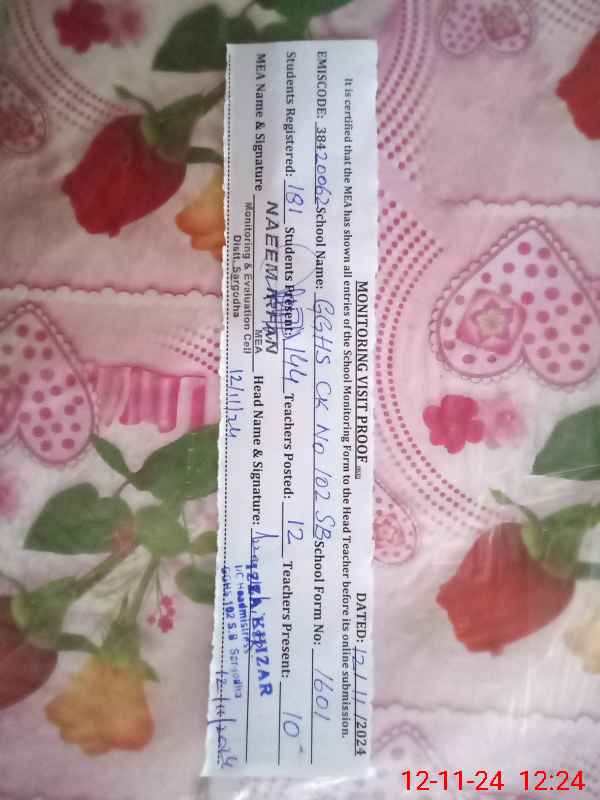 MONITORING VISIT PROOF DATED: 12/11/2024
It is certified that the MEA has shown all entries of the School Monitoring Form to the Head Teacher before its online submission.
EMISCODE: 38420062 School Name: GGHS CK No 102 SB School Form No: 1601
Students Registered: 181 Students Present: 144 Teachers Posted: 12 Teachers Present: 10
MEA Name & Signature NAEEM IRFAN Head Name & Signature:
MEA
Monitoring & Evaluation Cell
Distt. Sargodha
12/11/24
KHIZAR
I/C Headmistress
GGHS.102 S.B Sargodha
12/11/2024
12-11-24 12:24